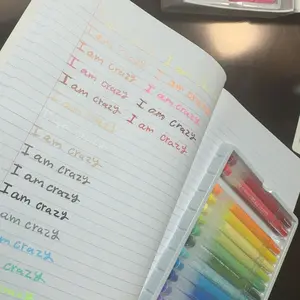 I am crazy
I am crazy I am crazy
I am crazy I am crazy
I am crazy I am crazy
I am crazy
I am crazy
I am crazy
I am crazy
I am crazy
am crazy
am crazy
am crazy
crazy